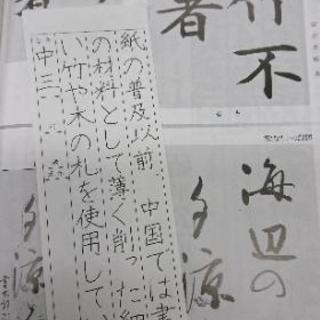 紙の普及以前、中国では書
の材料として薄く削った細
い竹や木の札を使用してい
中三
竹不
者
海辺の
夕涼
夕涼